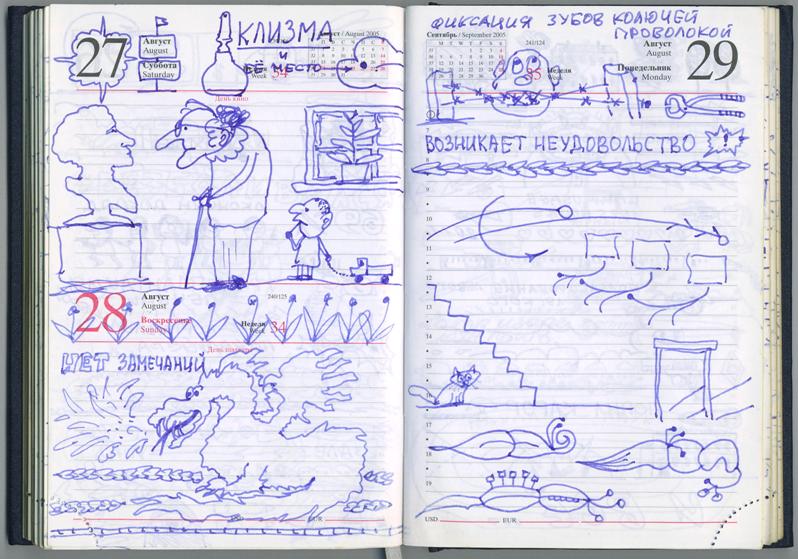 27
Август
August
Суббота
Saturday
КЛИЗМА
И
ЕЁ МЕСТО
Август / August 2005
Week 34
День кино
28
Август
August
Воскресенье
Sunday
240/125
Неделя
Week 34
НЕТ ЗАМЕЧАНИЙ
EUR
ФИКСАЦИЯ ЗУБОВ КОЛЮЧЕЙ
ПРОВОЛОКОЙ
Сентябрь / September 2005
241/124
35
Неделя
Week
Август
August
Понедельник
Monday
29
ВОЗНИКАЕТ НЕУДОВОЛЬСТВО !
7
8
9
10
11
12
13
14
15
16
17
18
19
USD
EUR